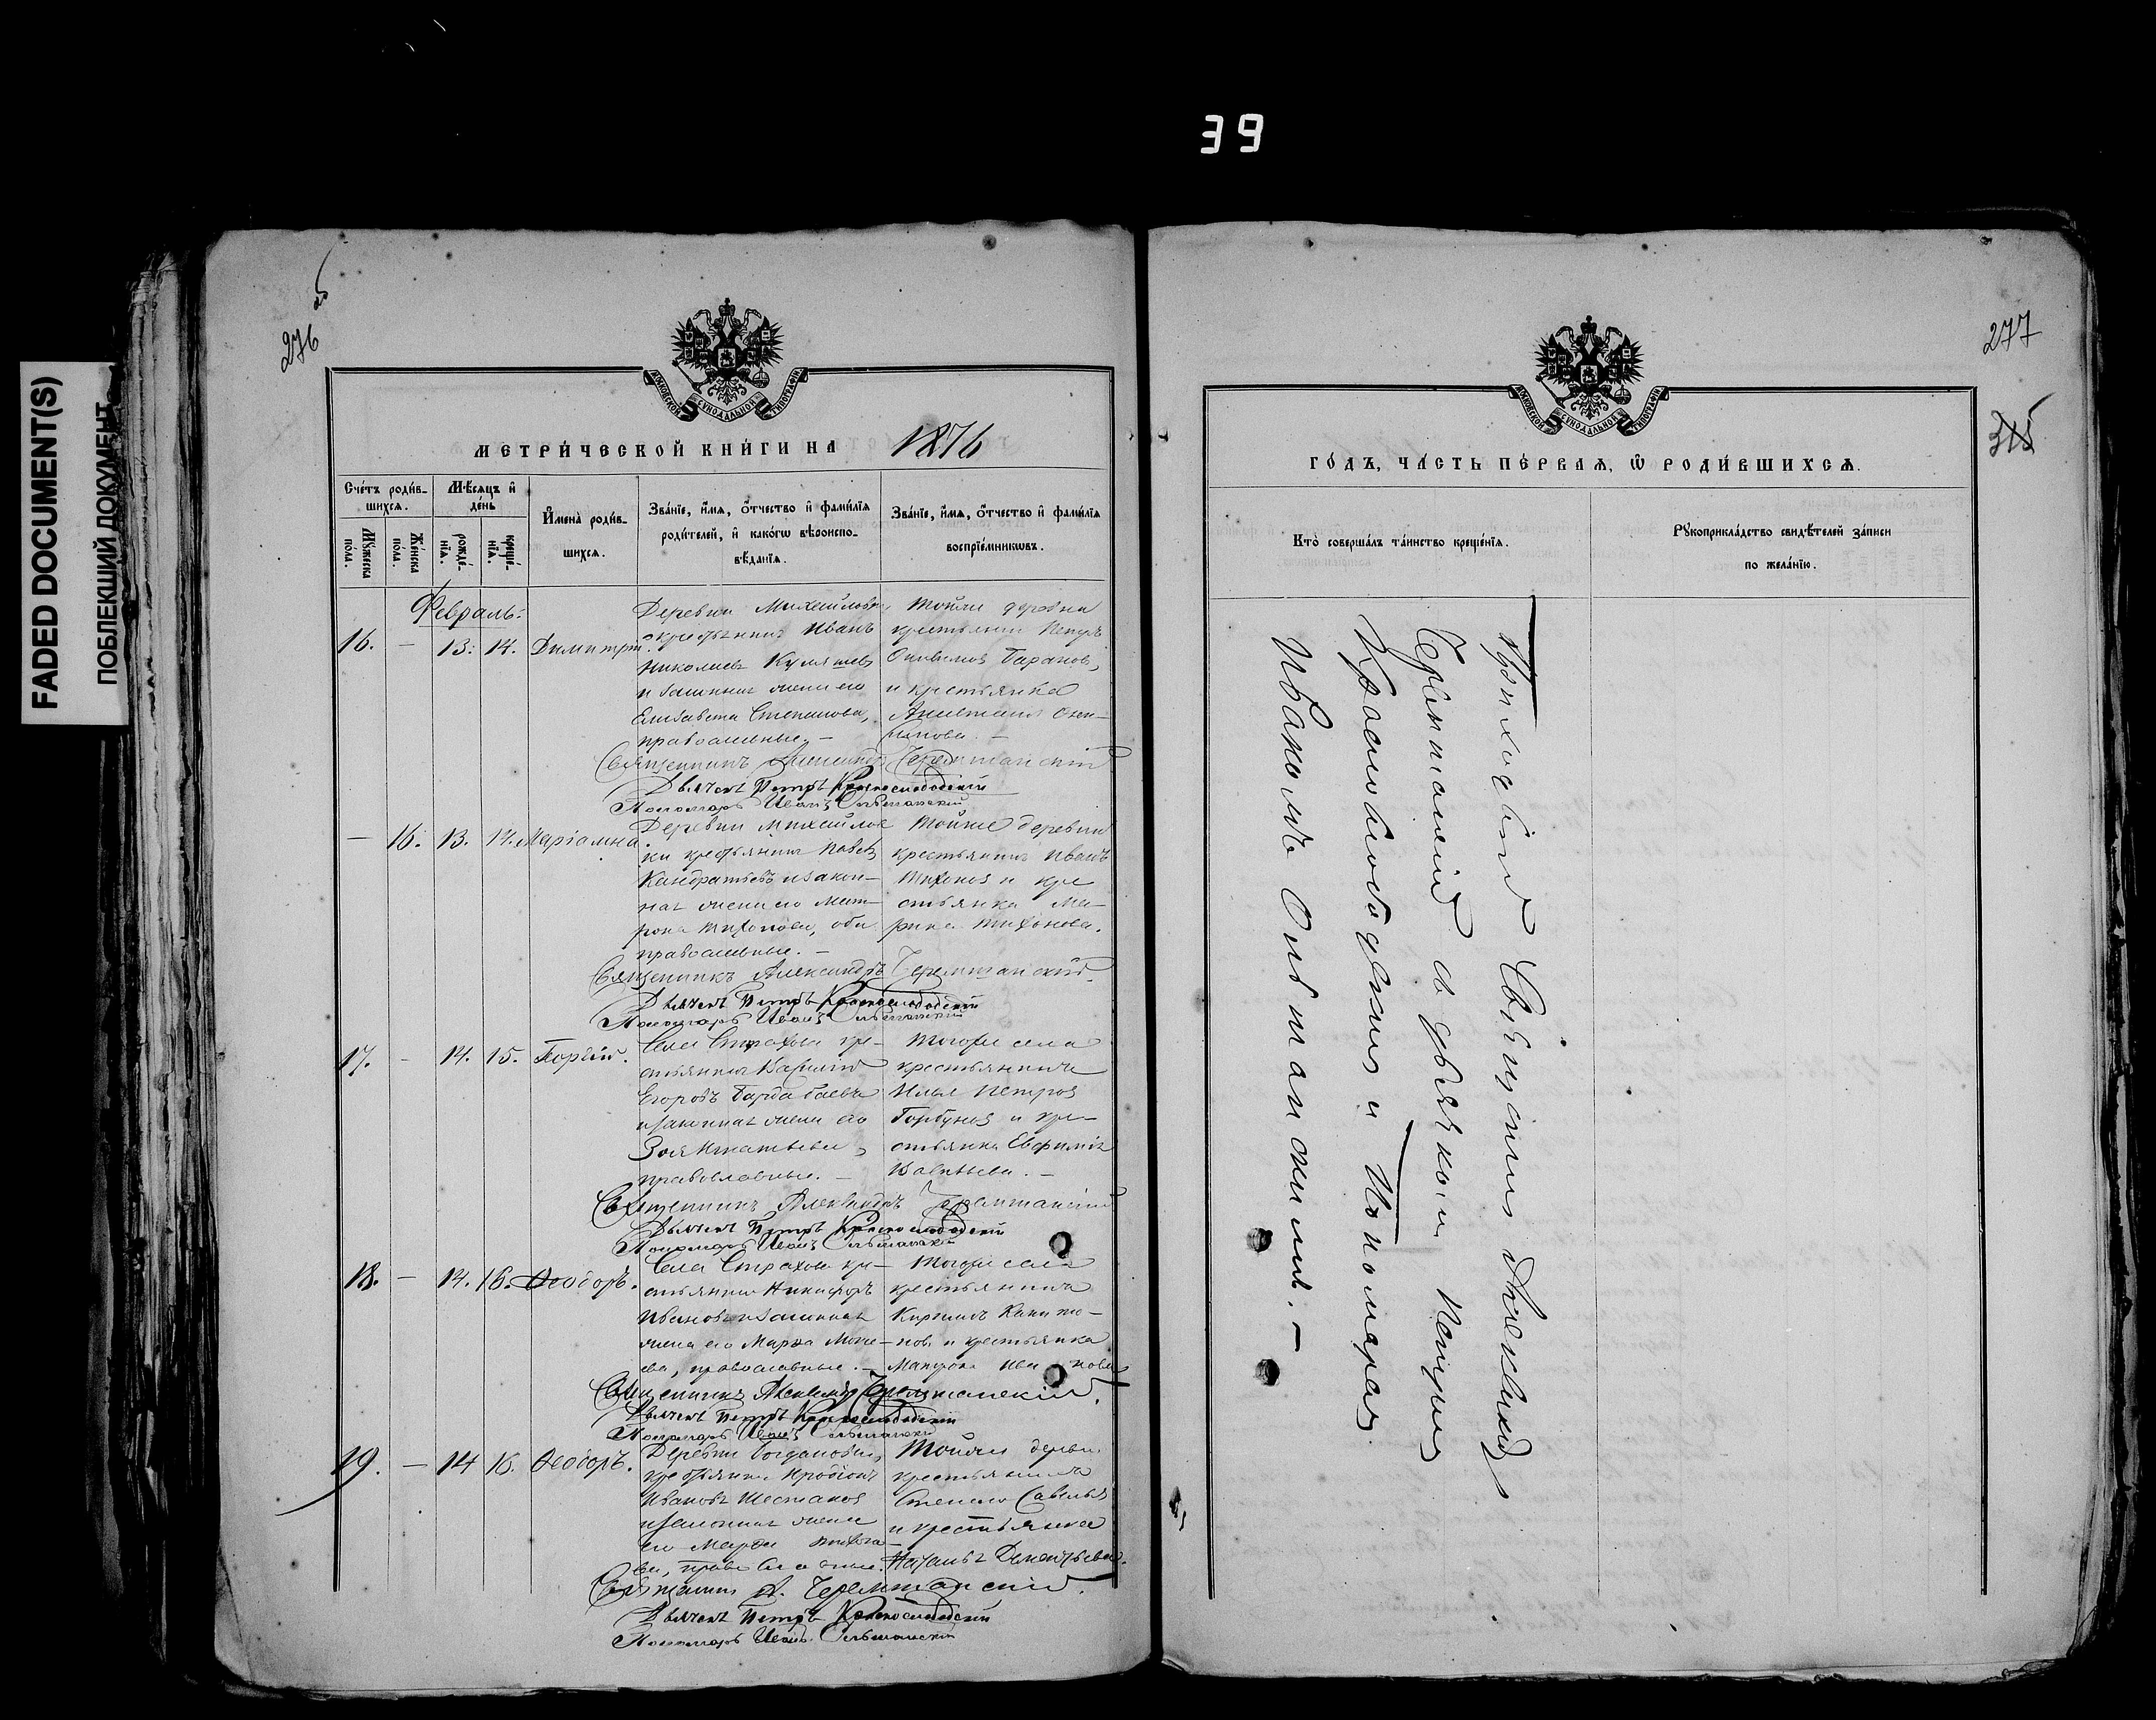 39
FADED DOCUMENT(S)
ПОБЛЕКШИЙ ДОКУМЕНТ
276 об
МОСКОВСКОЙ СѴНОДАЛЬНОЙ ТИПОГРАФІИ
МЕТРИ́ЧЕСКОЙ КНИ́ГИ НА 1876
Сче́тъ роди́в-
шихсѧ.
Мѣ́сѧцъ и҆
де́нь
Мꙋ́жеска
по́ла.
Же́нска
по́ла.
рожде́-
нїѧ.
креще́-
нїѧ.
И҆мена̀ роди́в-
шихсѧ.
Зва́нїе, и҆́мѧ, ѻ҆́тчество и҆ фами́лїѧ
роди́телей, и҆ како́гѡ вѣроиспо-
вѣ́данїѧ.
Зва́нїе, и҆́мѧ, ѻ҆́тчество и҆ фами́лїѧ
воспрїе́мникѡвъ.
Февраль.
16. — 13. 14. Димитрій.
Деревни Михайловки
крестьянинъ Иванъ
Николаевъ
и законная жена его
Елисавета Степанова,
православные. —
Тойже деревни
крестьянинъ Петръ
Баранов,
и крестьянка
Священникъ Александръ Черемшанскій
Дьячекъ Петръ Краснослободскій
Пономарь Иванъ Ольшанскій
— 16. 13. 14. Маріамна.
Деревни Михайлов
ки крестьянинъ Павел
Кандратьевъ и закон-
ная жена его Мат-
рона Тихонова, оба
православные. —
Тойже деревни
крестьянинъ Иванъ
Тихонов и кре
стьянка Ма-
рина Тихонова.
Священникъ Александръ Черемшанскій
Дьячекъ Петръ Краснослободскій
Пономарь Иванъ Ольшанскій
17. — 14. 15. Георгій.
Села Страхова кре-
стьянинъ Василій
Егоровъ
и законная жена его
Зоя Игнатьева,
православные. —
Тогоже села
крестьянинъ
Илья Петров
Горбунов и кре-
стьянка Евфимія
Савельева. —
Священникъ Александръ Черемшанскій
Дьячекъ Петръ Краснослободскій
Пономарь Иванъ Ольшанскій
18. — 14. 16. Ѳеодоръ.
Села Страхова кре-
стьянинъ Никифоръ
Ивановъ и законная
жена его Марѳа Моисе-
ева, православные. —
Тогоже села
крестьянинъ
Кирилъ Капито-
нов. и крестьянка
Матрона Ива нова
Священникъ Александръ Черемшанскій.
Дьячекъ Петръ Краснослободскій
Пономарь Иванъ Ольшанскій
19. — 14 16. Ѳеодоръ.
Деревни Богдановки,
крестьянинъ Иродіонъ
Ивановъ Шестаков
и законная жена
его Марѳа
ва, православные.
Тойже деревни
крестьянинъ
Степанъ Савельев
и крестьянка
Наталья Дементьева.
Священникъ А. Черемшанскій.
Дьячекъ Петръ Краснослободскій
Пономарь Иванъ Ольшанскій
277
315
МОСКОВСКОЙ СѴНОДАЛЬНОЙ ТИПОГРАФІИ
ГО́ДЪ, ЧА́СТЬ ПЕ́РВАѦ, Ѡ҆ РОДИ́ВШИХСѦ.
Кто̀ соверша́лъ та́инство креще́нїѧ.
Рꙋкоприкла́дство свидѣ́телей за́писи
по жела́нїю.
Приходскій Священникъ Александр
Черемшанскій съ дьячкомъ Петром
Краснослободскимъ и Пономарем
Иваномъ Ольшанскимъ. —